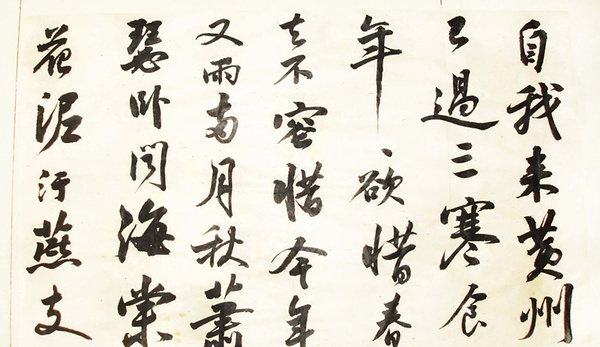 自我来黄州
已過三寒食
年、欲惜春
去不容惜今年
又雨兩月秋蕭
瑟卧聞海棠
花泥汙燕支